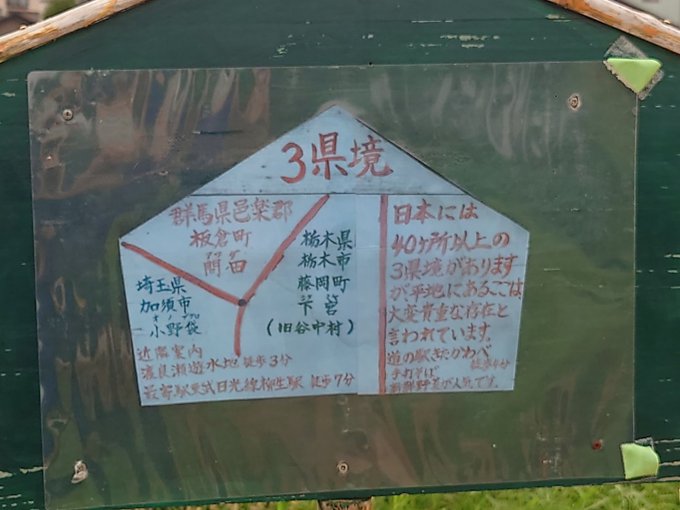 3県境
群馬県邑楽郡
板倉町
間田
栃木県
栃木市
藤岡町
下宮
(旧谷中村)
埼玉県
加須市
小野袋
近隣案内
渡良瀬遊水地 徒歩3分
最寄駅東武日光線柳生駅 徒歩7分
日本には
40ヶ所以上の
3県境があります
が平地にあるここは
大変貴重な存在と
言われています。
道の駅きたかわべ
手打そば
新鮮野菜が人気です。